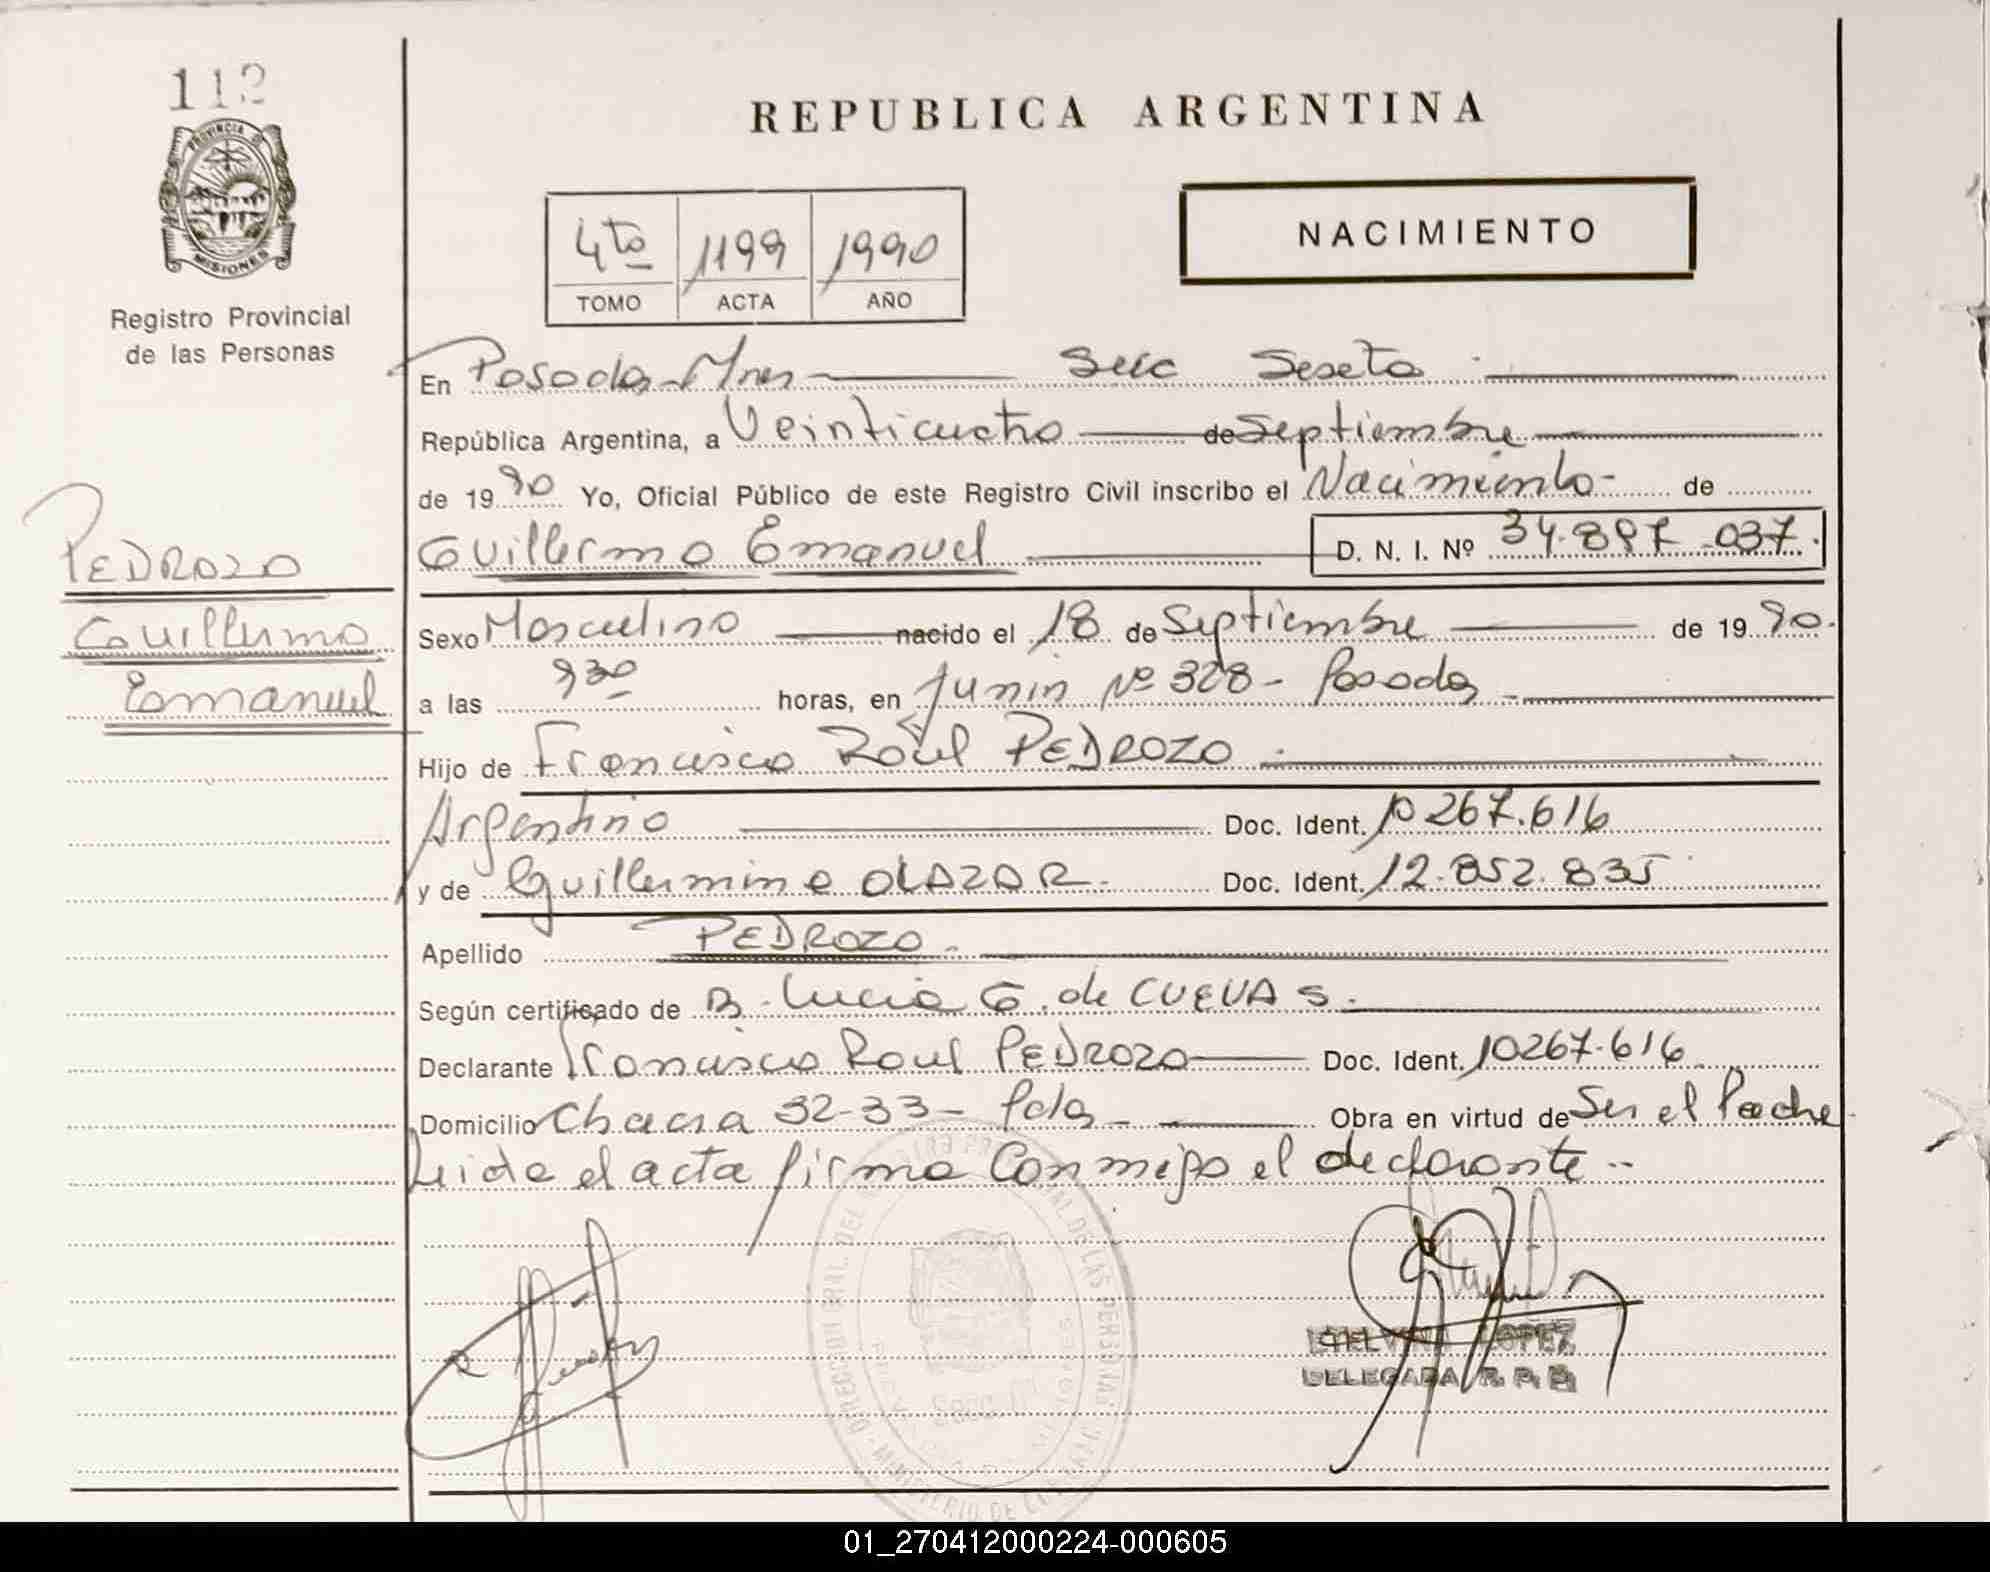 112
PROVINCIA D
MISIONES
Registro Provincial
de las Personas
PEDROZO
Guillermo
Emanuel
REPUBLICA ARGENTINA
4to 1199 1990
TOMO ACTA AÑO
NACIMIENTO
En Posadas - Mnes Secc Sexta
República Argentina, a Veinticuatro de Septiembre
de 1990 Yo, Oficial Público de este Registro Civil inscribo el Nacimiento - de
Guillermo Emanuel D. N. I. Nº 34.897.037.
Sexo Masculino nacido el 18 de Septiembre de 1990.
a las 930 horas, en Junin Nº 328 - Posadas
Hijo de Francisco Raúl PEDROZO
Argentino Doc. Ident. 10267.616
y de Guillermina OLAZAR. Doc. Ident. 12.852.835
Apellido PEDROZO.
Según certificado de B. Lucia G. de CUEVAS.
Declarante Francisco Raul PEDROZO Doc. Ident. 10267.616
Domicilio Chacra 32-33- Pdas Obra en virtud de Ser el Padre
Leida el acta firma Conmigo el declarante..
ETELVINA LOPEZ
DELEGADA R. P. P.
01_270412000224-000605